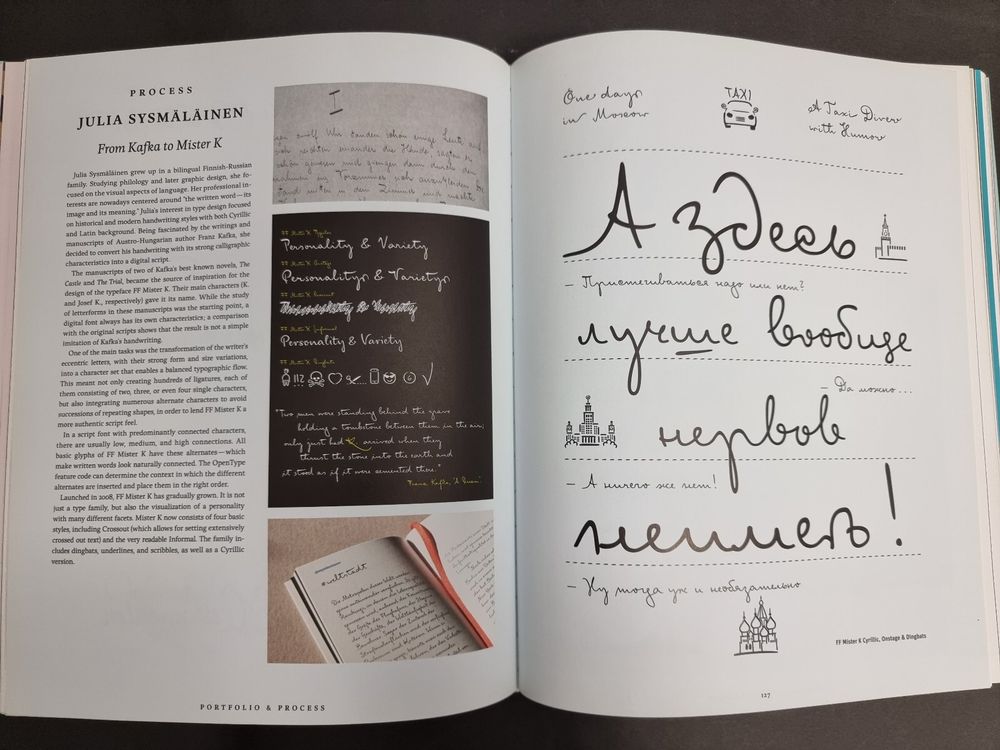 PROCESS
JULIA SYSMÄLÄINEN
From Kafka to Mister K
Julia Sysmäläinen grew up in a bilingual Finnish-Russian
family. Studying philology and later graphic design, she fo-
cused on the visual aspects of language. Her professional in-
terests are nowadays centered around "the written word—its
image and its meaning." Julia's interest in type design focused
on historical and modern handwriting styles with both Cyrillic
and Latin background. Being fascinated by the writings and
manuscripts of Austro-Hungarian author Franz Kafka, she
decided to convert his handwriting with its strong calligraphic
characteristics into a digital script.
The manuscripts of two of Kafka's best known novels, The
Castle and The Trial, became the source of inspiration for the
design of the typeface FF Mister K. Their main characters (K.
and Josef K., respectively) gave it its name. While the study
of letterforms in these manuscripts was the starting point, a
digital font always has its own characteristics; a comparison
with the original scripts shows that the result is not a simple
imitation of Kafka's handwriting.
One of the main tasks was the transformation of the writer's
eccentric letters, with their strong form and size variations,
into a character set that enables a balanced typographic flow.
This meant not only creating hundreds of ligatures, each of
them consisting of two, three, or even four single characters,
but also integrating numerous alternate characters to avoid
successions of repeating shapes, in order to lend FF Mister K a
more authentic script feel.
In a script font with predominantly connected characters,
there are usually low, medium, and high connections. All
basic glyphs of FF Mister K have these alternates—which
make written words look naturally connected. The OpenType
feature code can determine the context in which the different
alternates are inserted and place them in the right order.
Launched in 2008, FF Mister K has gradually grown. It is not
just a type family, but also the visualization of a personality
with many different facets. Mister K now consists of four basic
styles, including Crossout (which allows for setting extensively
crossed out text) and the very readable Informal. The family in-
cludes dingbats, underlines, and scribbles, as well as a Cyrillic
version.
FF Mister K Regular
Personality & Variety
FF Mister K Onstage
Personality & Variety
FF Mister K Crossout
FF Mister K Informal
Personality & Variety
FF Mister K Dingbats
"Two men were standing behind the grave
holding a tombstone between them in the air;
only just had K. arrived when they
thrust the stone into the earth and
it stood as if it were cemented there."
Franz Kafka, "A Dream"
#weltstadt
PORTFOLIO & PROCESS
One days
in Moscow
TAXI
A Taxi Driver
with Humor
А здесь
– Пристегиваться надо или нет?
лучше вообще
– Да можно...
нервов
– А ничего же нет!
неиметь!
– Ну тогда уж и необязательно
FF Mister K Cyrillic, Onstage & Dingbats
127